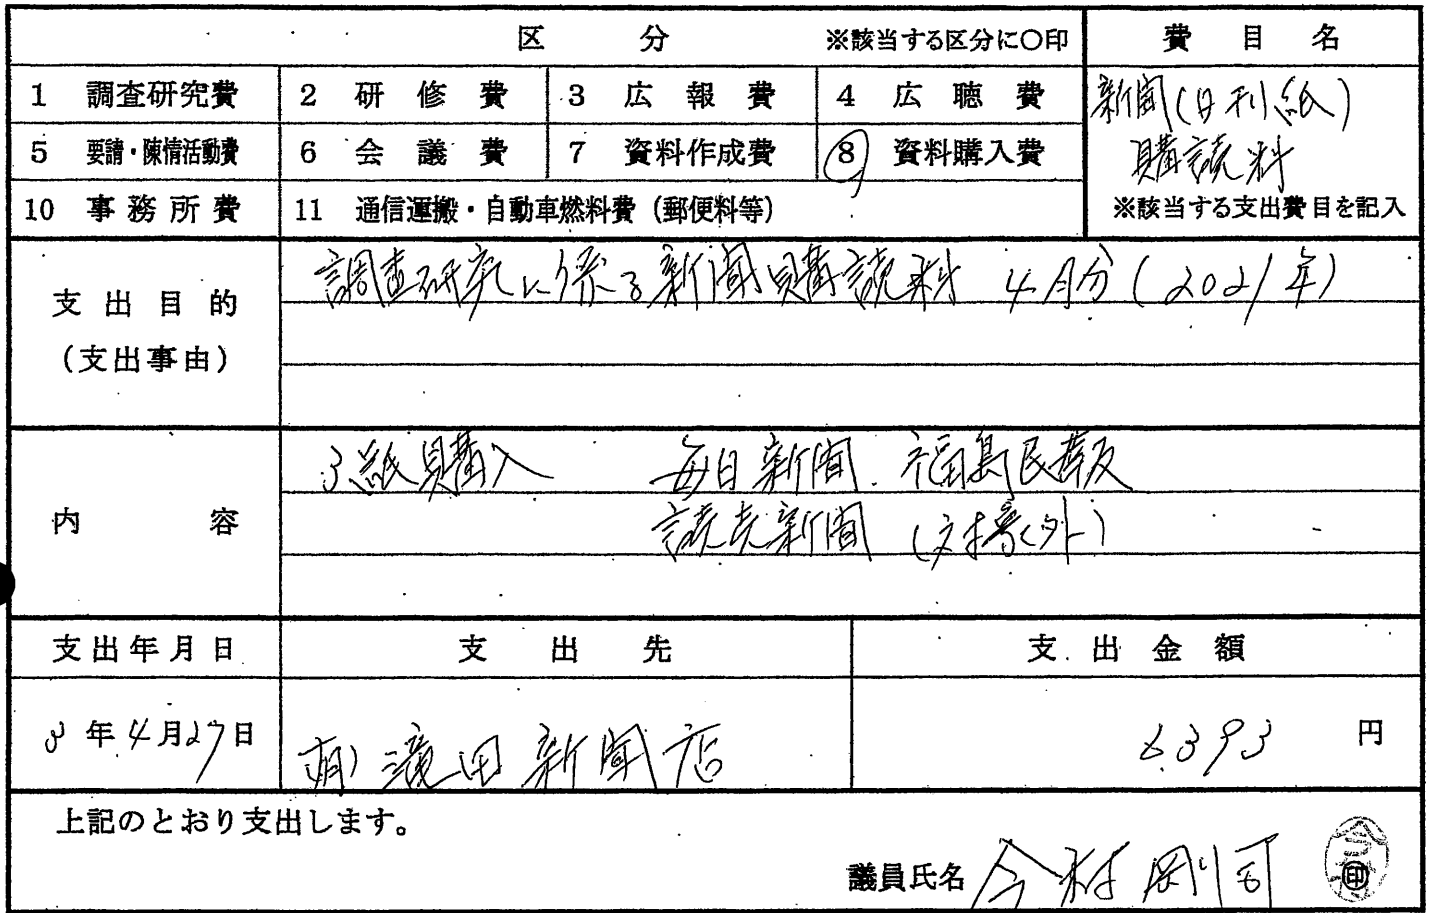 区 分 ※該当する区分に○印 費目名
1 調査研究費 2 研修費 3 広報費 4 広聴費 新聞(日刊紙)
5 要請・陳情活動費 6 会議費 7 資料作成費 8 資料購入費 購読料
10 事務所費 11 通信運搬・自動車燃料費(郵便料等) ※該当する支出費目を記入
支出目的 調査研究に係る新聞購読料 4月分(2021年)
(支出事由)
内容 3紙購入 毎日新聞. 福島民報
読売新聞
支出年月日 支出先 支出金額
3年4月27日 (有)滝田新聞店 6393円
上記のとおり支出します。
議員氏名 今村剛司 ㊞